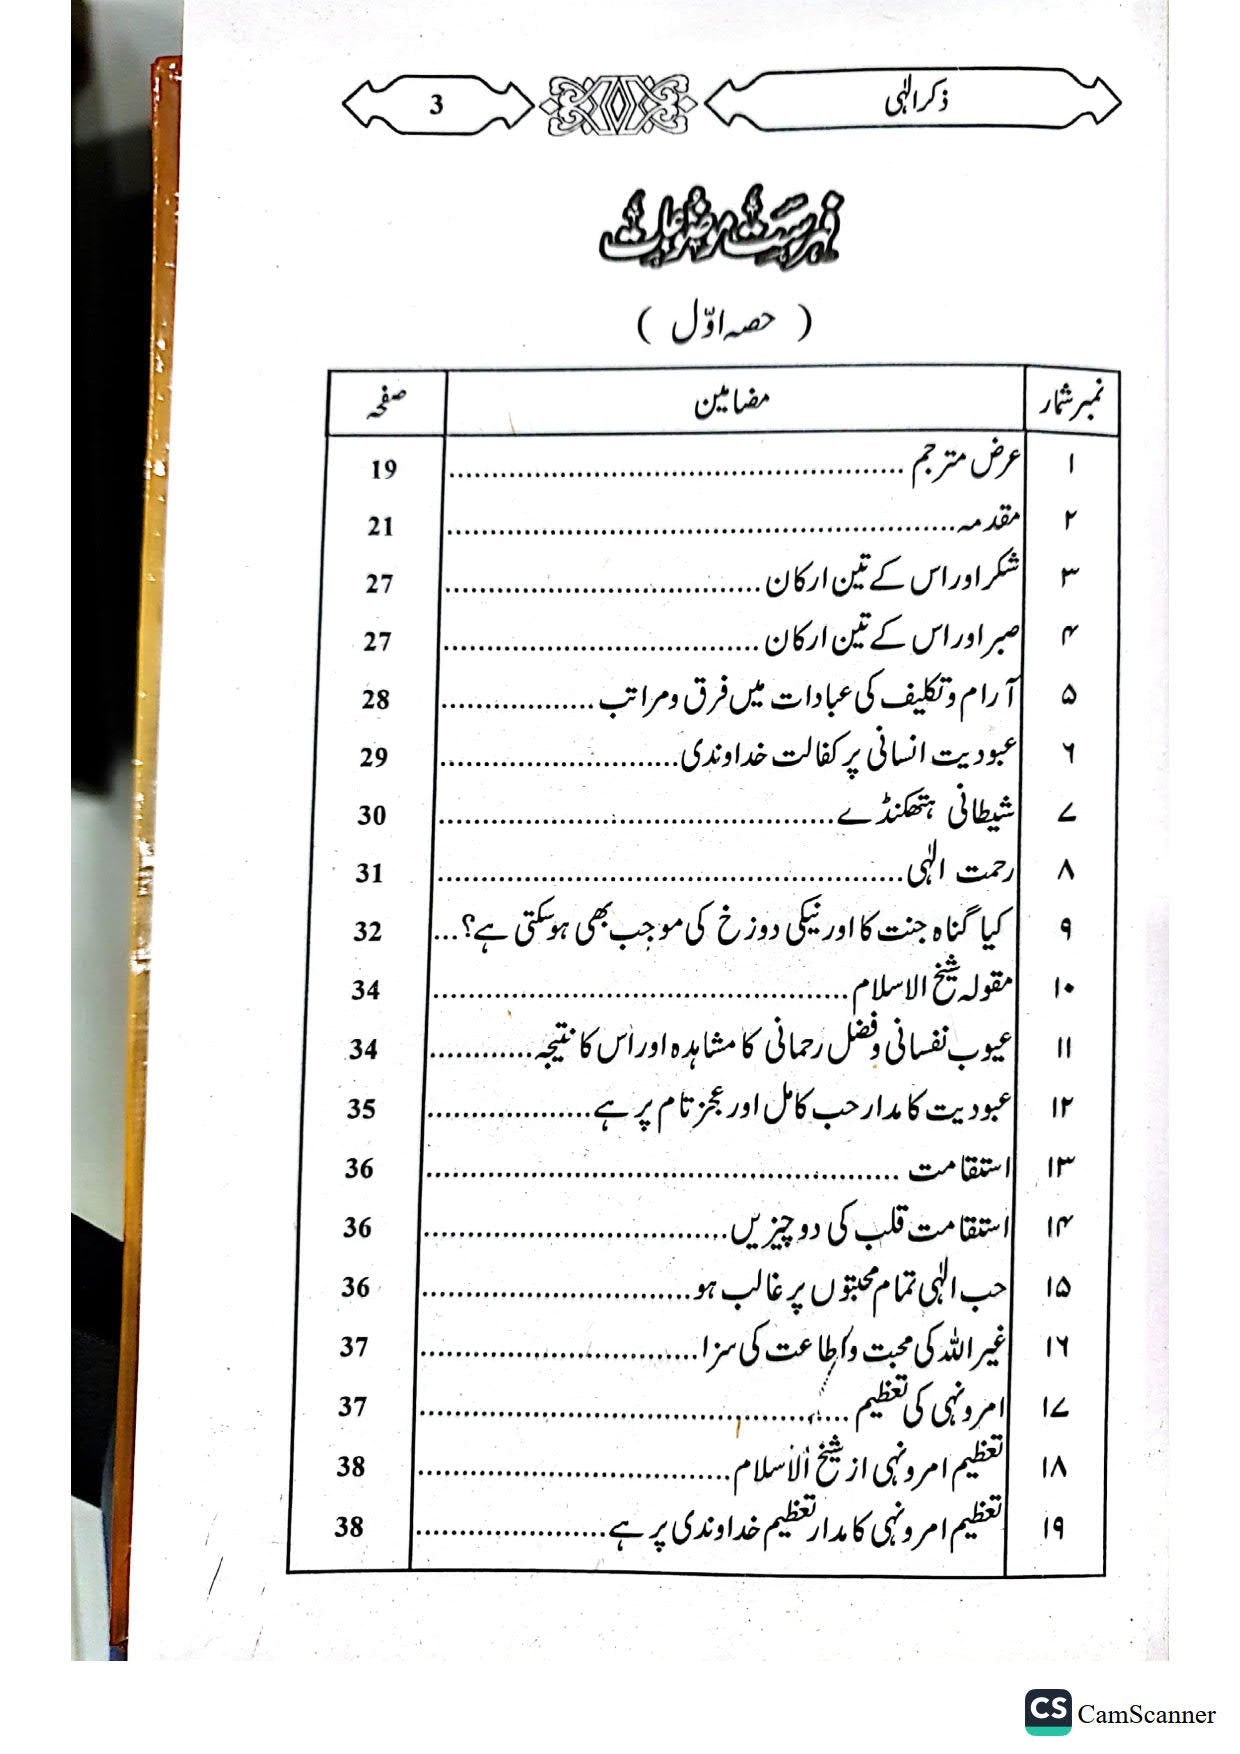 ذکر الٰہی 3
فہرست موضوعات
( حصہ اوّل )
نمبر شمار مضامین صفحہ
۱ عرض مترجم ........ 19
۲ مقدمہ ........ 21
۳ شکر اور اس کے تین ارکان ........ 27
۴ صبر اور اس کے تین ارکان ........ 27
۵ آرام و تکلیف کی عبادات میں فرق و مراتب ........ 28
۶ عبودیت انسانی پر کفالت خداوندی ........ 29
۷ شیطانی ہتھکنڈے ........ 30
۸ رحمت الٰہی ........ 31
۹ کیا گناہ جنت کا اور نیکی دوزخ کی موجب بھی ہو سکتی ہے؟... 32
۱۰ مقولہ شیخ الاسلام ........ 34
۱۱ عیوب نفسانی و فضل رحمانی کا مشاہدہ اور اس کا نتیجہ ........ 34
۱۲ عبودیت کا مدار حب کامل اور عجز تام پر ہے ........ 35
۱۳ استقامت ........ 36
۱۴ استقامت قلب کی دو چیزیں ........ 36
۱۵ حب الٰہی تمام محبتوں پر غالب ہو ........ 36
۱۶ غیر اللہ کی محبت و اطاعت کی سزا ........ 37
۱۷ امر و نہی کی تعظیم ........ 37
۱۸ تعظیم امر و نہی از شیخ الاسلام ........ 38
۱۹ تعظیم امر و نہی کا مدار تعظیم خداوندی پر ہے ........ 38
CS CamScanner